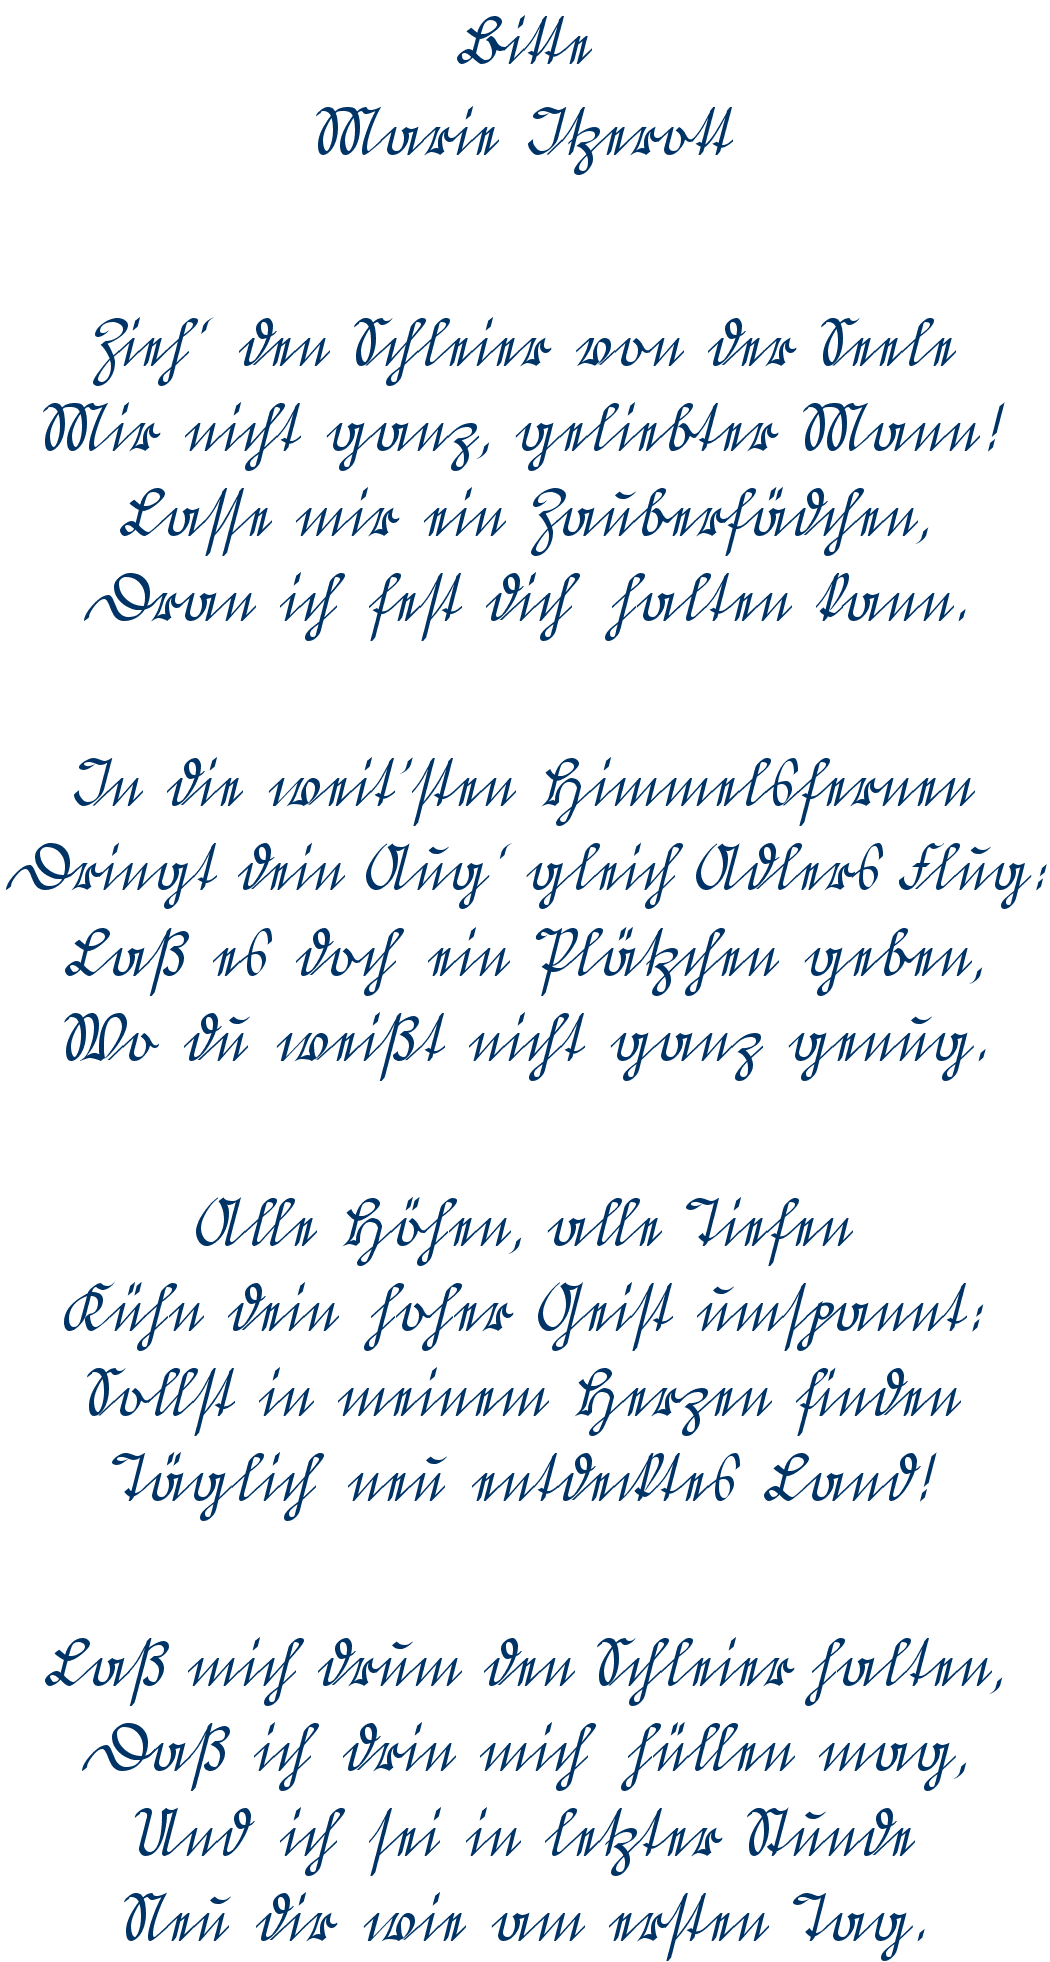 Bitte
Marie Itzerott
Zieh' den Schleier von der Seele
Mir nicht ganz, geliebter Mann!
Lasse mir ein Zauberfädchen,
Dran ich fest dich halten kann.
In die weit'sten Himmelsfernen
Dringt dein Aug' gleich Adlers Flug:
Laß es doch ein Plätzchen geben,
Wo du weißt nicht ganz genug.
Alle Höhen, alle Tiefen
Kühn dein hoher Geist umspannt:
Sollst in meinem Herzen finden
Täglich neu entdecktes Land!
Laß mich drum den Schleier halten,
Daß ich drin mich hüllen mag,
Und ich sei in letzter Stunde
Neu dir wie am ersten Tag.